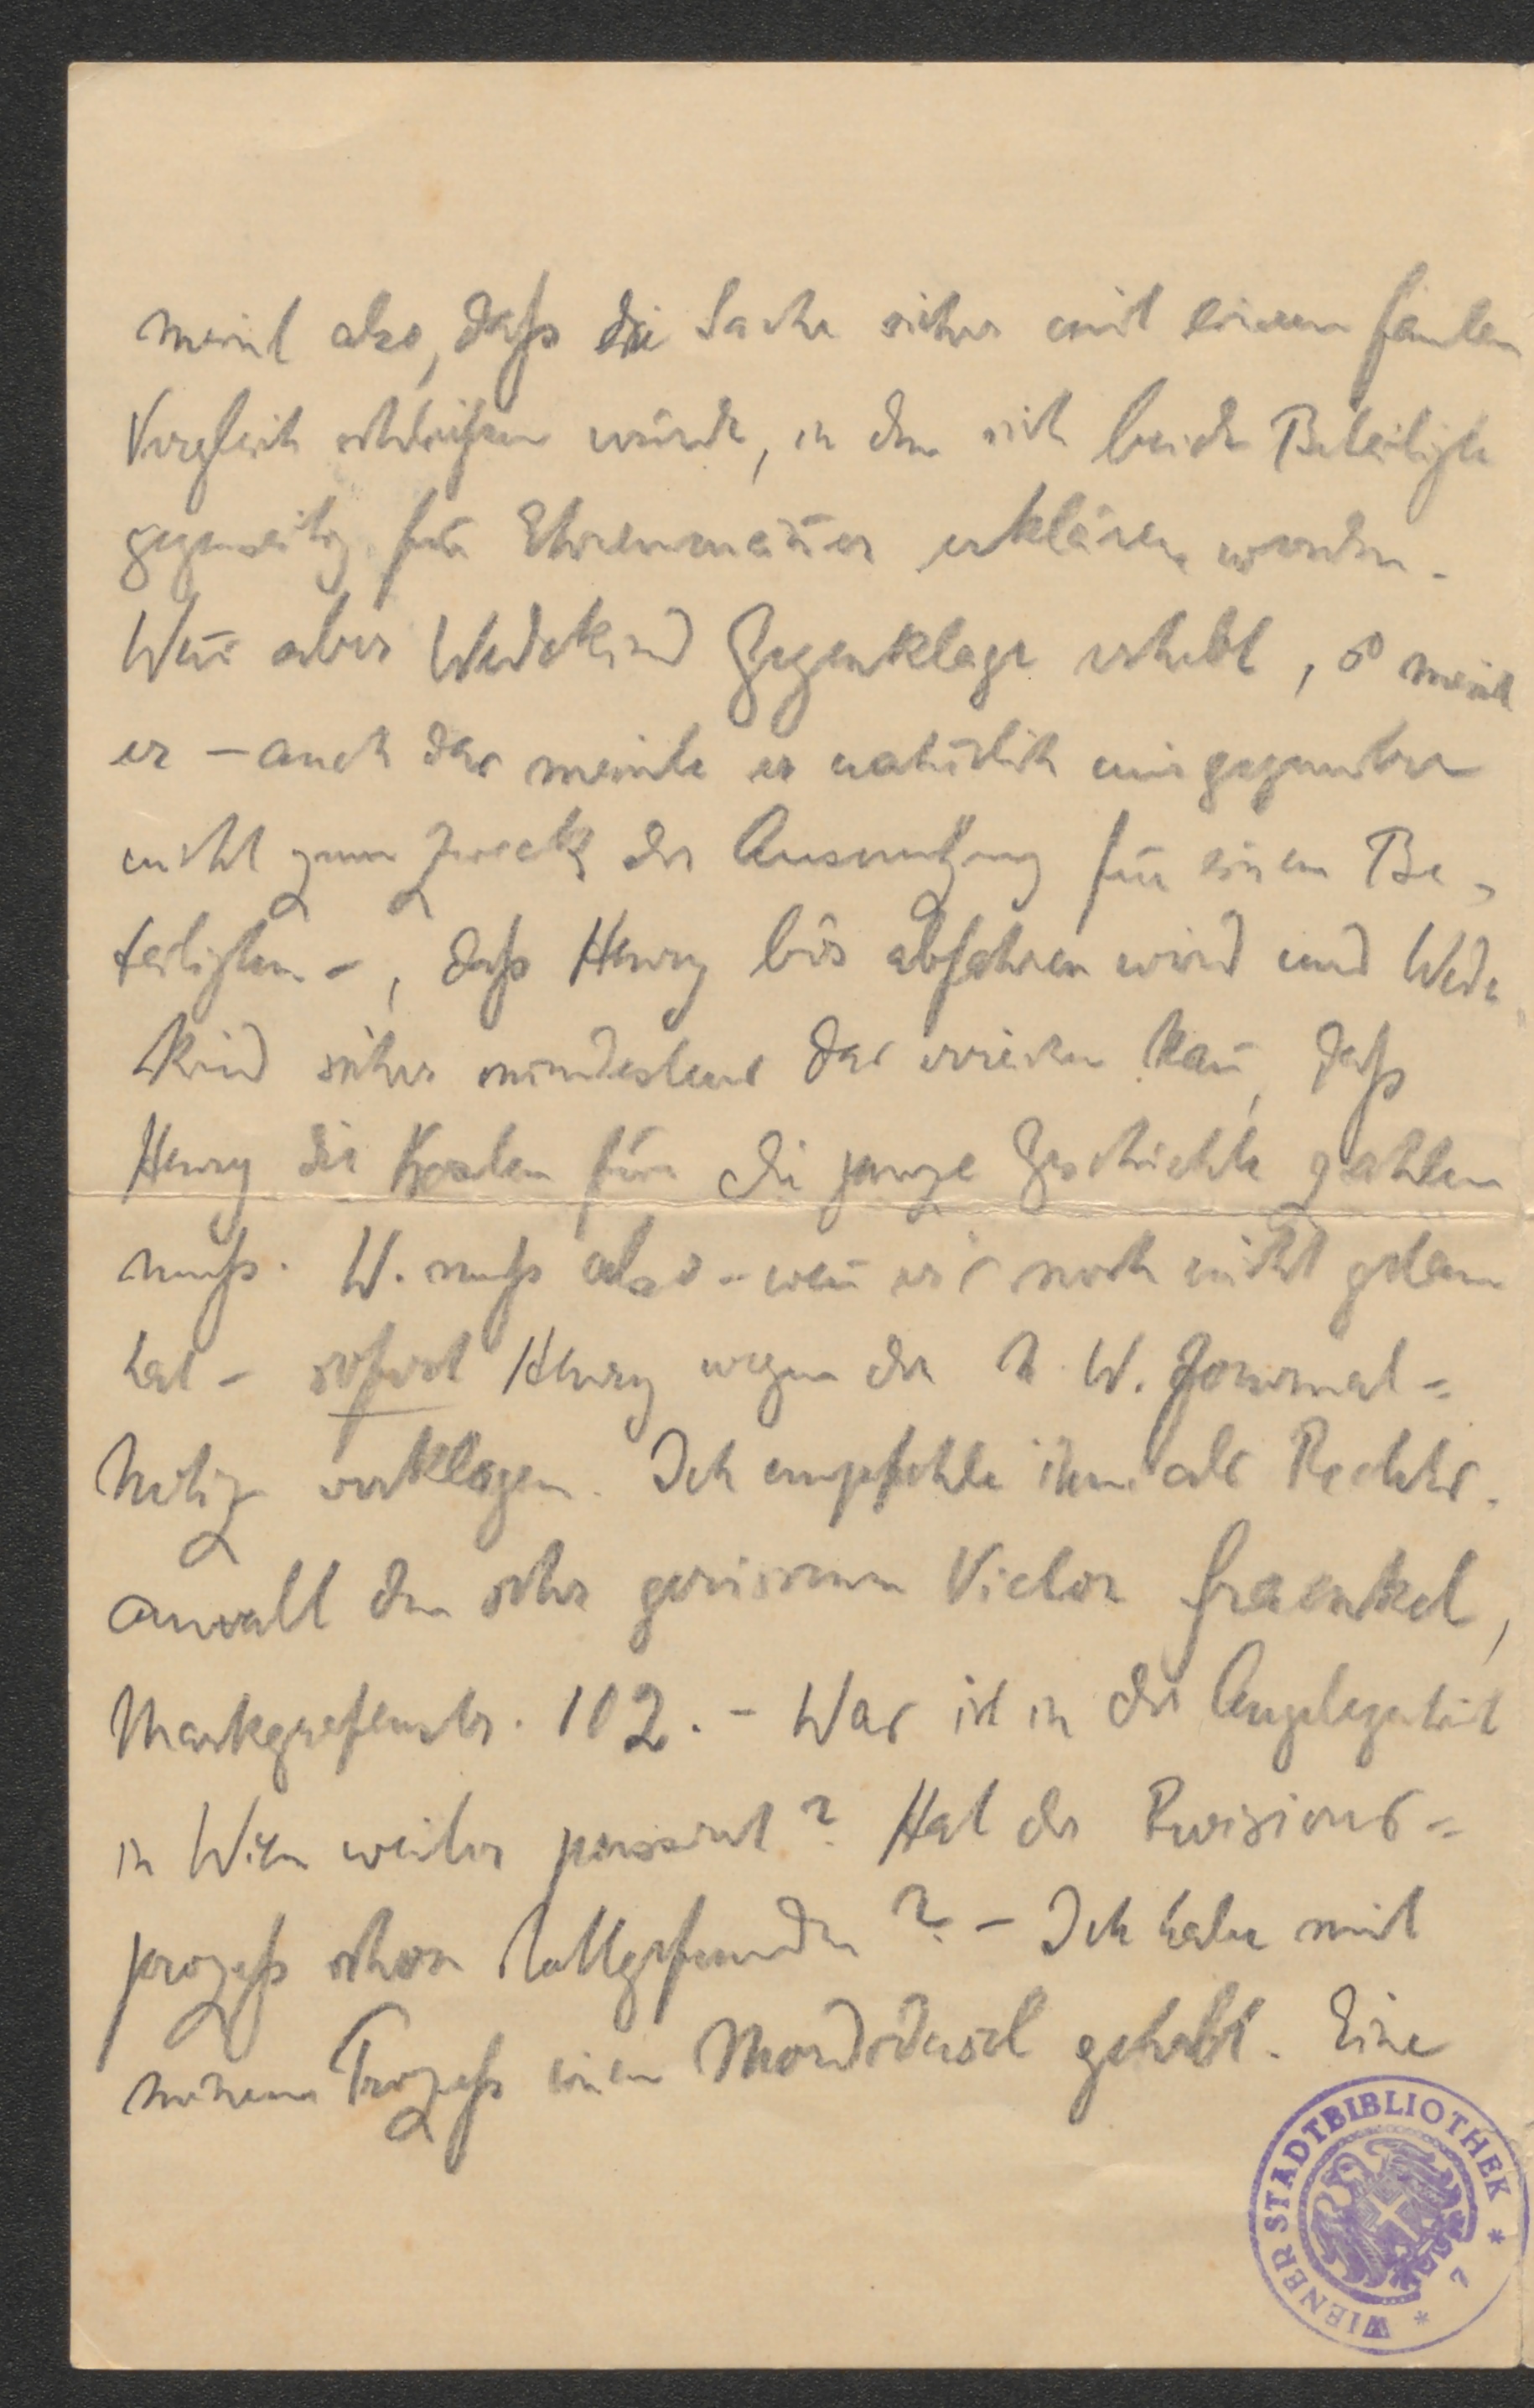 meint also, daß die Sache sicher mit einem faulen
Vergleich schließen würde, in dem sich beide Beteiligte
gegenseitig für Ehrenmän̅er erklären werden.
Wen̅ aber Wedekind Gegenklage erhebt, so meint
er – auch das meinte er natürlich mir gegenüber
nicht zum Zweck der Ausnutzung für einen Be-
teiligten –, daß Henry bös abfahren wird und Wede-
kind sicher mindestens das erreichen kan̅, daß
Henry die Kosten für die ganze Geschichte zahlen
muß. W. muß also – wen̅ er's noch nicht getan
hat – sofort Henry wegen der N. W. Journal=
Notiz verklagen. Ich empfehle ihm als Rechts-
anwalt den sehr gerissenen Victor Fraenkel,
Markgrafenstr. 102. – Was ist in der Angelegenheit
in Wien weiter passiert? Hat der Revisions=
prozeß schon stattgefunden? – Ich habe mit
meinem Prozeß einen Mordsdusel gehabt. Eine
WIENER STADTBIBLIOTHEK * 7 *